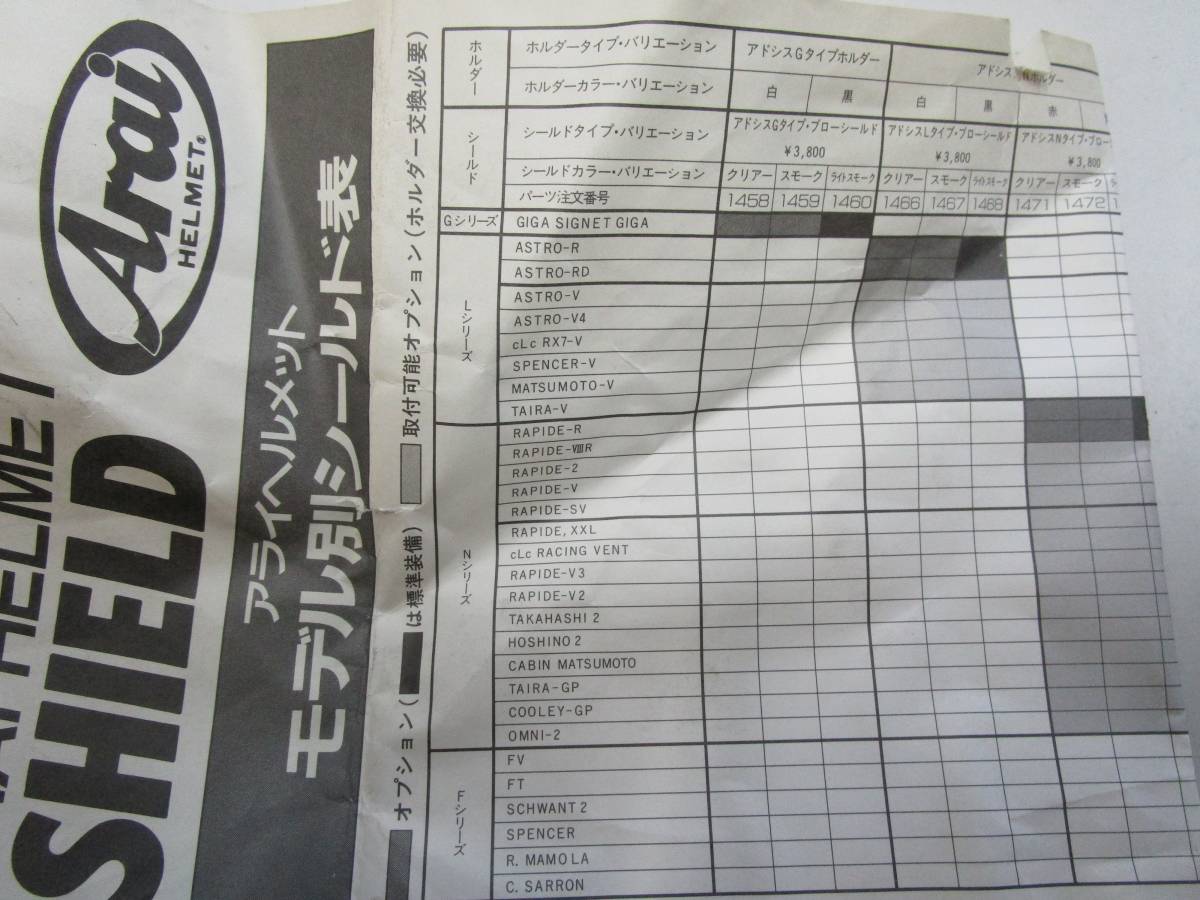 Arai
HELMET®
HELMET
SHIELD
アライヘルメット
モデル別シールド表
オプション(
は標準装備)
取付可能オプション(ホルダー交換必要)
ホルダー
ホルダータイプ・バリエーション
アドシスGタイプホルダー
アドシス
ホルダー
ホルダーカラー・バリエーション
白 黒 白 黒 赤
シールド
シールドタイプ・バリエーション
アドシスGタイプ・ブローシールド ¥3,800
アドシスLタイプ・ブローシールド ¥3,800
アドシスNタイプ・ブロー ¥3,800
シールドカラー・バリエーション
クリアー スモーク ライトスモーク クリアー スモーク ライトスモーク クリアー スモーク
パーツ注文番号
1458 1459 1460 1466 1467 1468 1471 1472
Gシリーズ
GIGA SIGNET GIGA
Lシリーズ
ASTRO-R
ASTRO-RD
ASTRO-V
ASTRO-V4
cLc RX7-V
SPENCER-V
MATSUMOTO-V
TAIRA-V
Nシリーズ
RAPIDE-R
RAPIDE-VIIIR
RAPIDE-2
RAPIDE-V
RAPIDE-SV
RAPIDE, XXL
cLc RACING VENT
RAPIDE-V3
RAPIDE-V2
TAKAHASHI 2
HOSHINO 2
CABIN MATSUMOTO
TAIRA-GP
COOLEY-GP
OMNI-2
Fシリーズ
FV
FT
SCHWANT 2
SPENCER
R. MAMOLA
C. SARRON